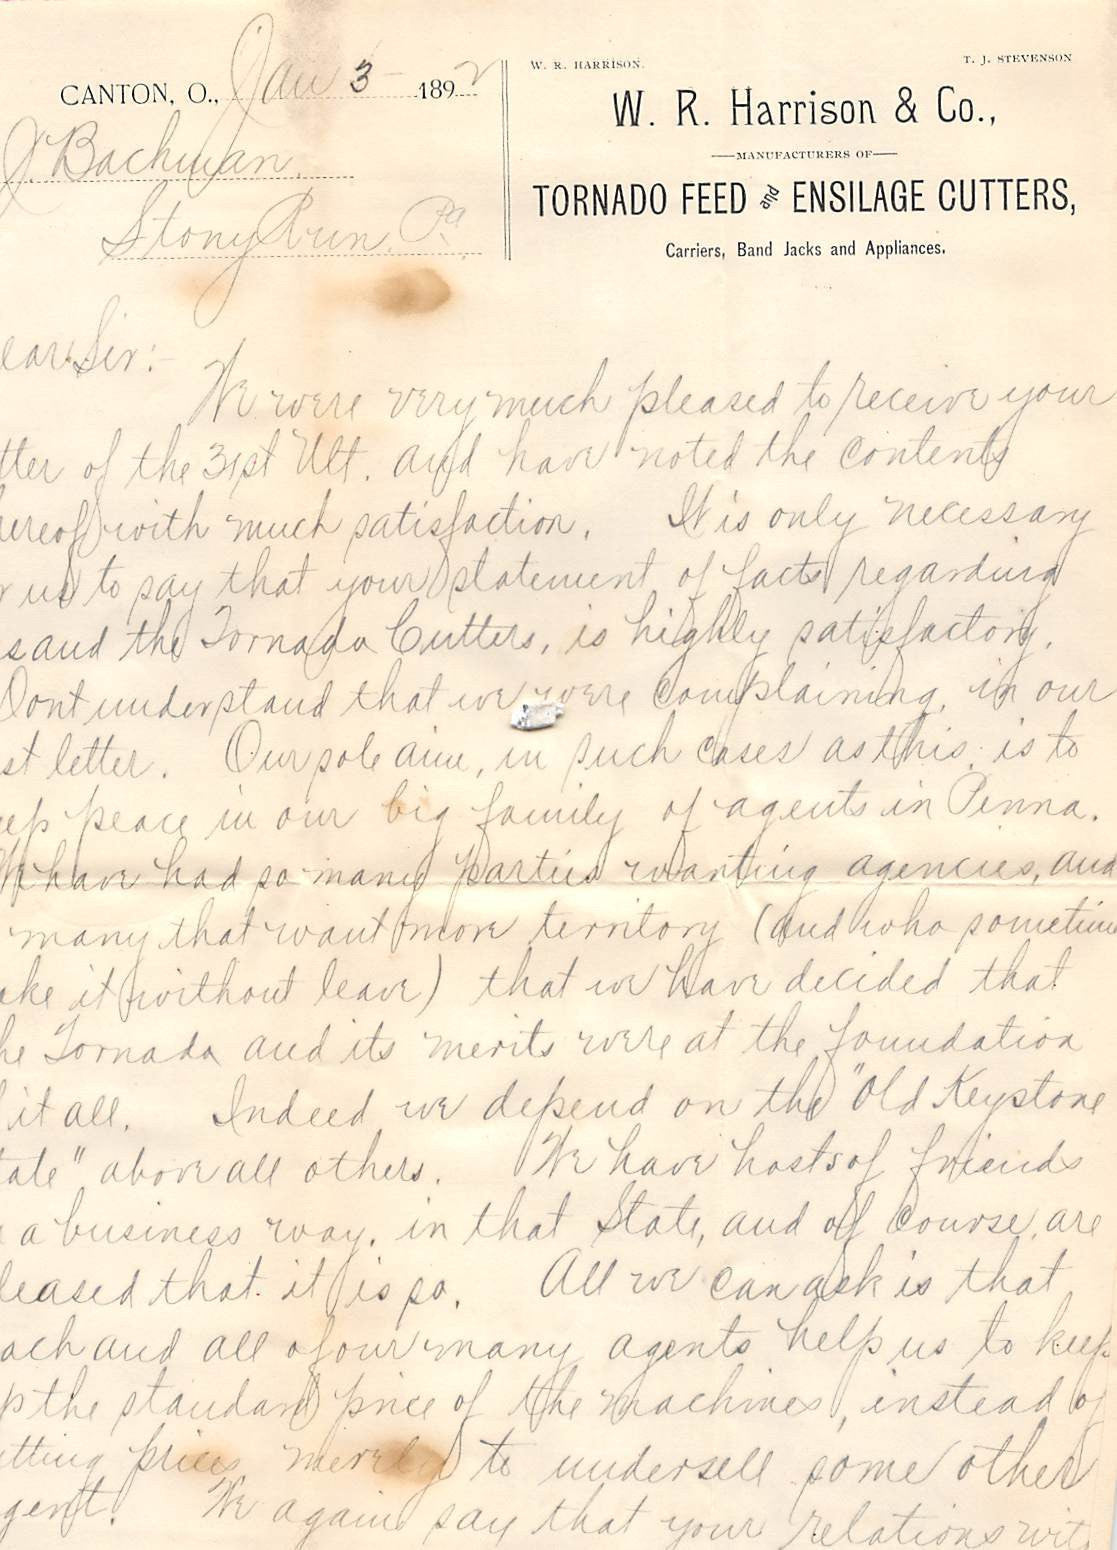 W. R. HARRISON. T. J. STEVENSON
CANTON, O., Jan 3 1892
W. R. Harrison & Co.,
MANUFACTURERS OF
TORNADO FEED and ENSILAGE CUTTERS,
Carriers, Band Jacks and Appliances.
J. Bachman.
Stony Run. Pa.
ear Sir:-
We were very much pleased to receive your
tter of the 31st Ult. and have noted the contents
hereof with much satisfaction. It is only necessary
r us to say that your statement of facts regarding
s and the Tornado Cutters, is highly satisfactory.
Dont understand that we were complaining, in our
st letter. Our sole aim, in such cases as this, is to
eep peace in our big family of agents in Penna.
We have had so many parties wanting agencies, and
many that want more territory (and who sometim
ake it without leave) that we have decided that
he Tornado and its merits were at the foundation
f it all. Indeed we depend on the "Old Keystone
tate" above all others. We have hosts of friends
a business way, in that State, and of course, are
leased that it is so. All we can ask is that
ach and all of our many agents help us to keep
p the standard price of the machines, instead of
utting prices merely to undersell some other
gent. We again say that your relations wit